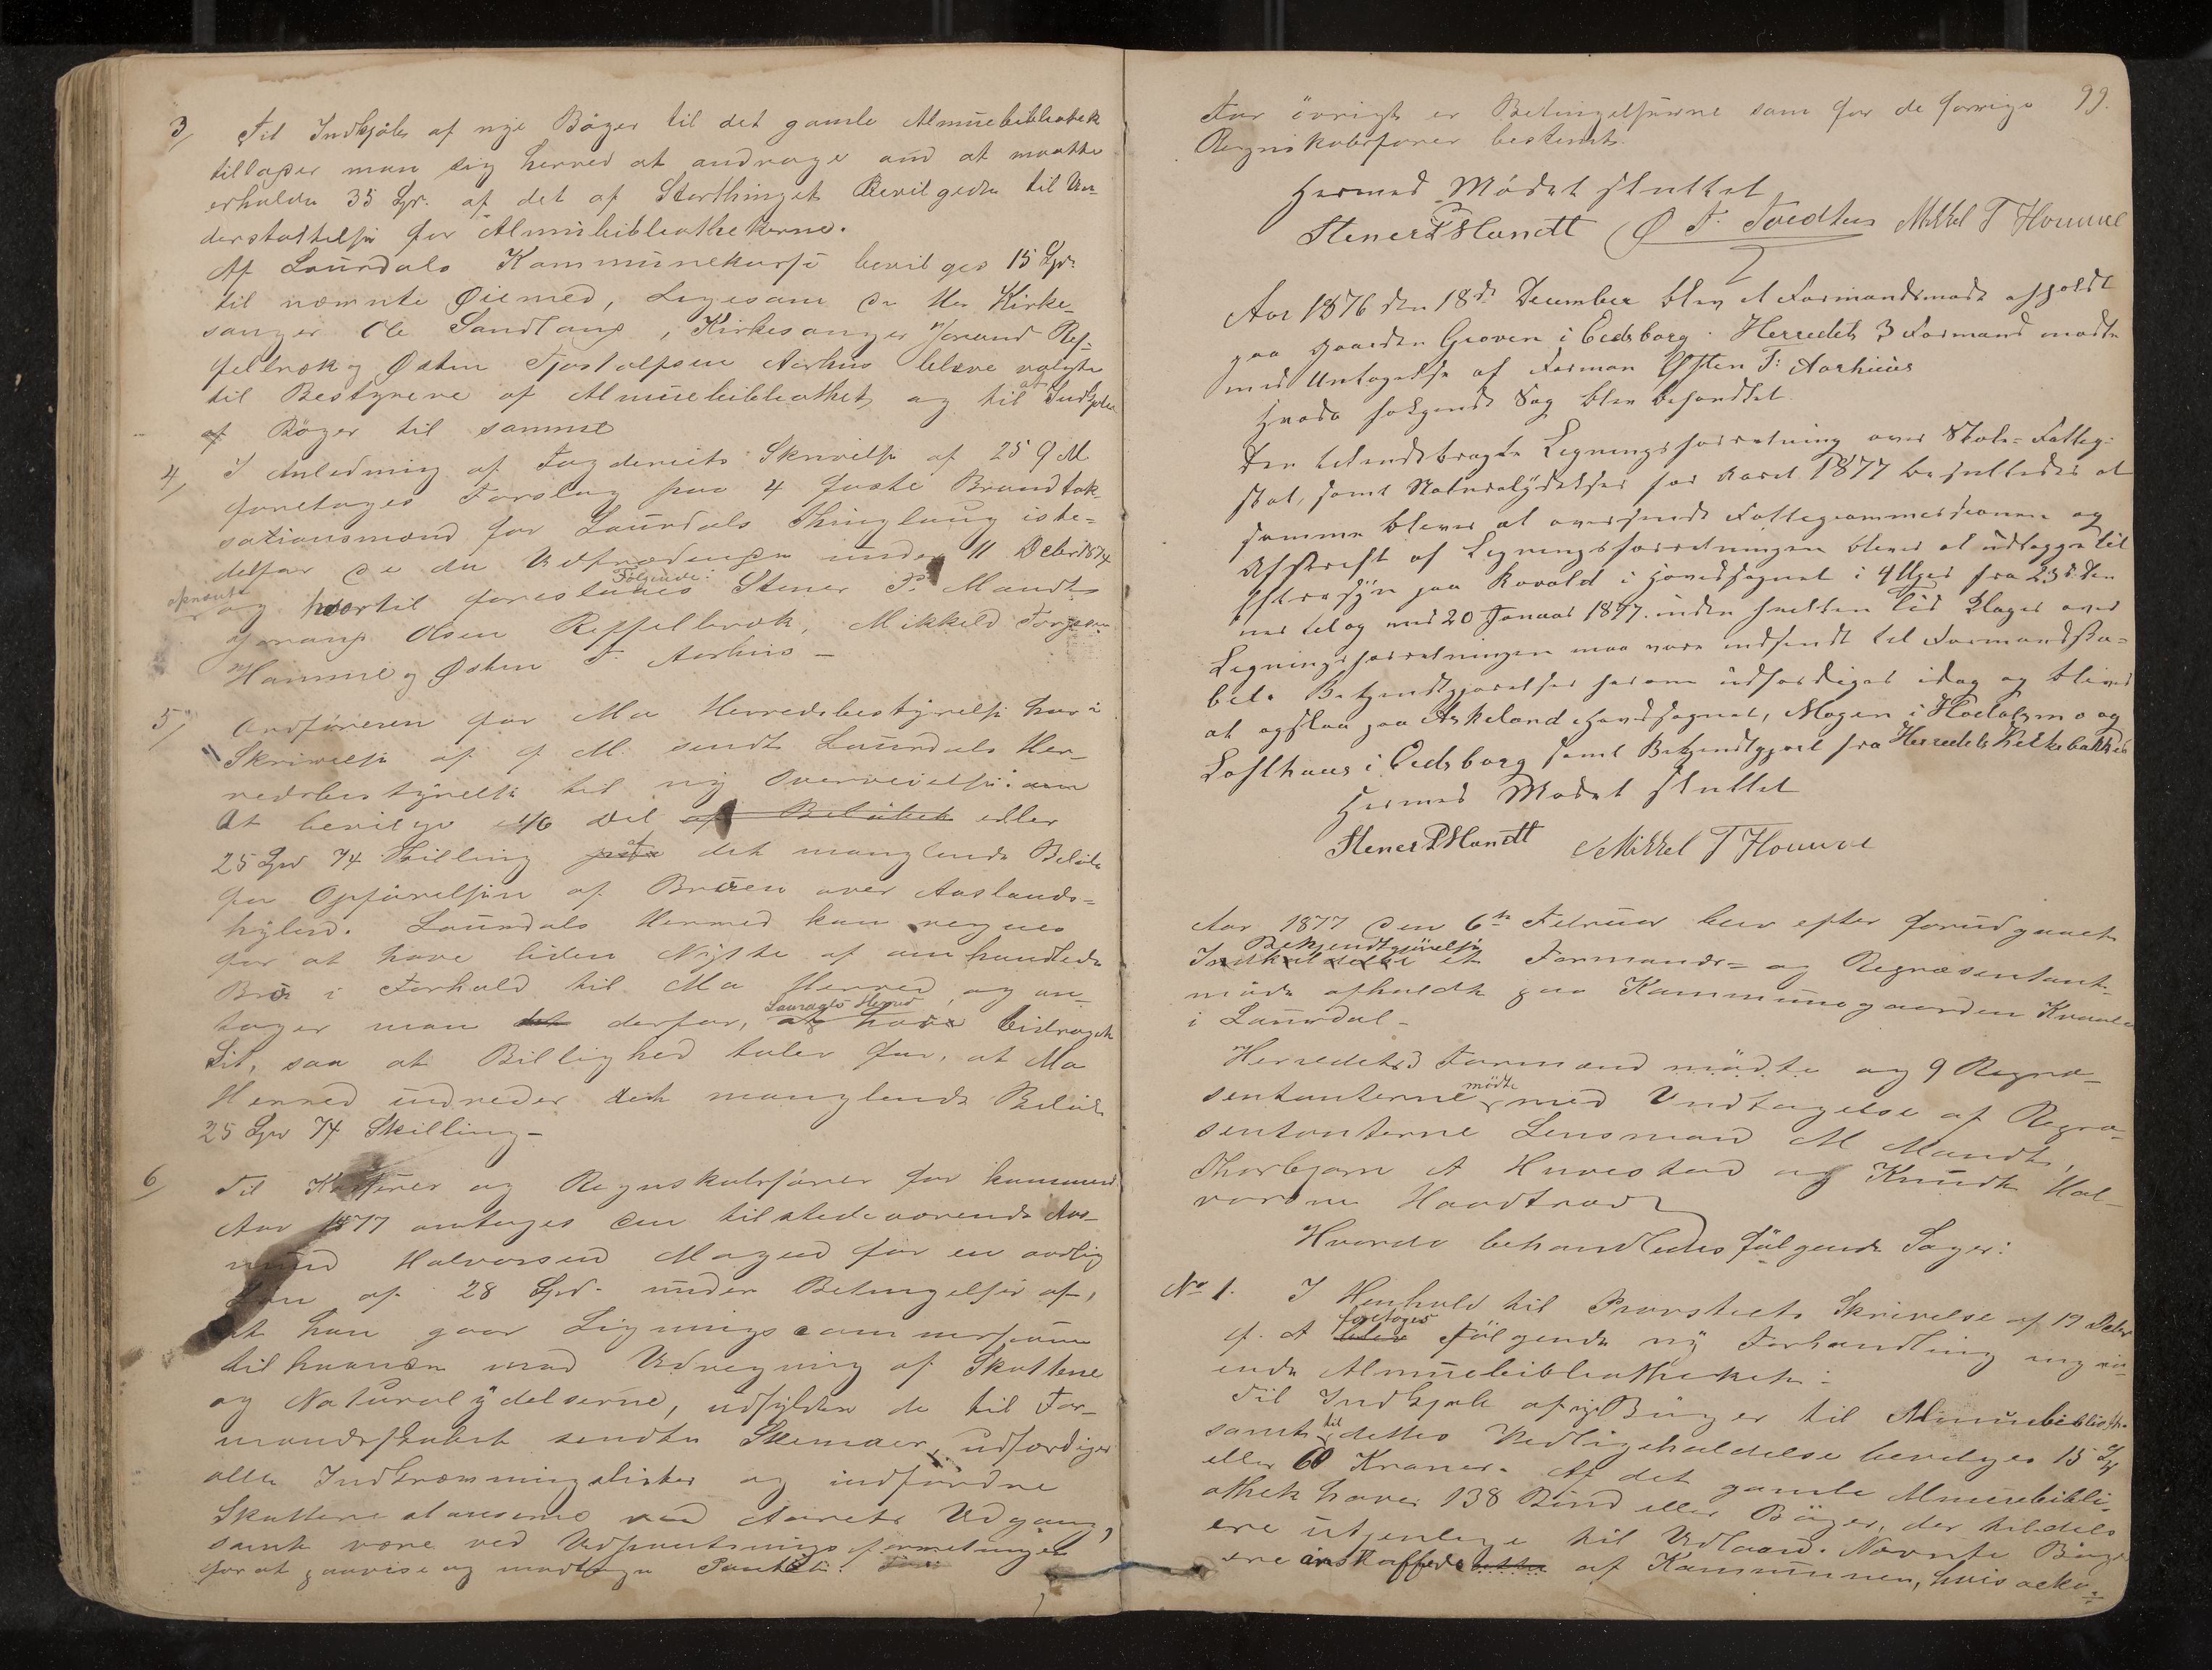 3/ Til Indkjøb af nye Bøger til det gamle Almuebibliothek
tillader man sig herved at andrage om at maatte
erholde 35 Spr. af det af Storthinget Bevilgede til Un-
derstøttelse for Almuebibliothekerne.
Af Laurdals Kommunekasse bevilges 15 Spd.
til nævnte Øiemed, Ligesom de Hr Kirke-
sanger Ole Sandland, Kirkesanger
og Østen Tjostolfsen Aarhus bleve valgte
til Bestyrere af Almuebibliothek og til at Indkjøbe
af Bøger til samme
4/ I Anledning af Fogderiets Skrivelse af 25 f M
foretages Forslag paa 4 faste Brandtak-
sationsmænd for Laurdals Thinglaug iste-
detfor de den under 11 Debr 1874
opnævnte og hvortil foreslaaes Følgende: Stener P. Mandt
Olsen Mikkel Torjesen
Homme og Østen T. Aarhus –
5/ Ordføreren for Mo Herredsbestyrelse har i
Skrivelse af f M. sendt Laurdals Her-
redsbestyrelse til ny Overveielse: om
At bevilge 1/6 Del af Beløbet eller
25 Spd 74 Skilling af det manglende Beløb
for Opførelsen af Broen over Aaslands-
hylen. Laurdals Herred kan regnes
for at have liden Nytte af omhandlede
Bro i Forhold til Mo Herred, og an-
tager man det derfor, at Laurdals Herred have bidraget
Sit, saa at Billighed taler for, at Mo
Herred udreder det manglende Beløb
25 Spd 74 Skilling –
6/ Til Kasserer og Regnskabsfører for kommende
Aar 1877 antages den tilstedeværende Aas-
mund Halvorsen Mogen for en aarlig
Løn af 28 Spd. under Betingelse af,
at han gaar Ligningscommissionen
tilhaande med Udregning af Skattene
og Naturalydelserne, udfylder de til For-
mandskabet sendte Skemaer, udfærdiger
alle Indkrævningslister og indfordre
Skatterestancerne ved Aarets Udgang,
samt være ved Udpantningsforretninger
for at paavise og modtage Pantet.
For övrigt er Betingelserne som for de forrige 99.
Regnskabsfører bestemt.
Hermed Mødet sluttet
Stener P Mandt Ø T. Mikkel T Homme
Aar 1876 den 18de December blev et Formandsmøde afholdt
paa Gaarden Groven i Eidsborg. Herredets 3 Formænd mødte
med Untagelse af Forman Østen T. Aarhuus
Hvorda følgende Sag blev behandlet.
Den tilendebragte Ligningsforretning over Skole- Fatteg-
skat, samt Naturalydelser for Aaret 1877 besluttedes at
samme bliver at oversende Fattigcommissionen og
Afskrift af Ligningsforretningen bliver at udlægge til
Eftersyn paa Kovold i Hovedsognet i 4 Uger fra 23de den-
nes til og med 20 Januar 1877. inden hvilken Tid Klager over
Ligningsforretningen maa være indsendt til Formandska-
bet. Bekjendtgjørelser herom udfærdiges idag og bliver
at opslaa paa Askeland Hovedsognet, Mogen i Høidalsmo og
Lofthuus i Eidsborg samt Bekjendtgjort fra Herredets Kirkebakker
Hermed Mødet sluttet
Stener P Mandt Mikkel T Homme
Aar 1877 den 6te Februar blev efter forudgaaet
Bekjendtgjørelse et Formands- og Repræsentant-
møde afholdt paa Kommunegaarden Kvaale
i Laurdal –
Herredets 3 Formænd mødte og 9 Repræ-
sentanterne mødte med Undtagelse af Repræ-
sentanterne Lensmand M Mandt,
Thorbjørn A Huvestad og Knudt Hal-
vorsen Haadtrod
Hvorda behandledes følgende Sager:
No 1. I Henhold til Provstiets Skrivelse af 19 Debr
f. A foretages følgende ny Forhandling angaa-
ende Almuebibliotheket:
Til Indkjøb af nye Bøger til Almuebiblioth.
samt til dettes Vedligeholdelse bevilges 15 Spd
eller 60 Kroner. Af det gamle Almuebibli-
othek haves 138 Bind eller Bøger, der tildels
ere utjenlige til Udlaan. Nævnte Bøger
ere anskaffede af Kommunen, hvis øko-